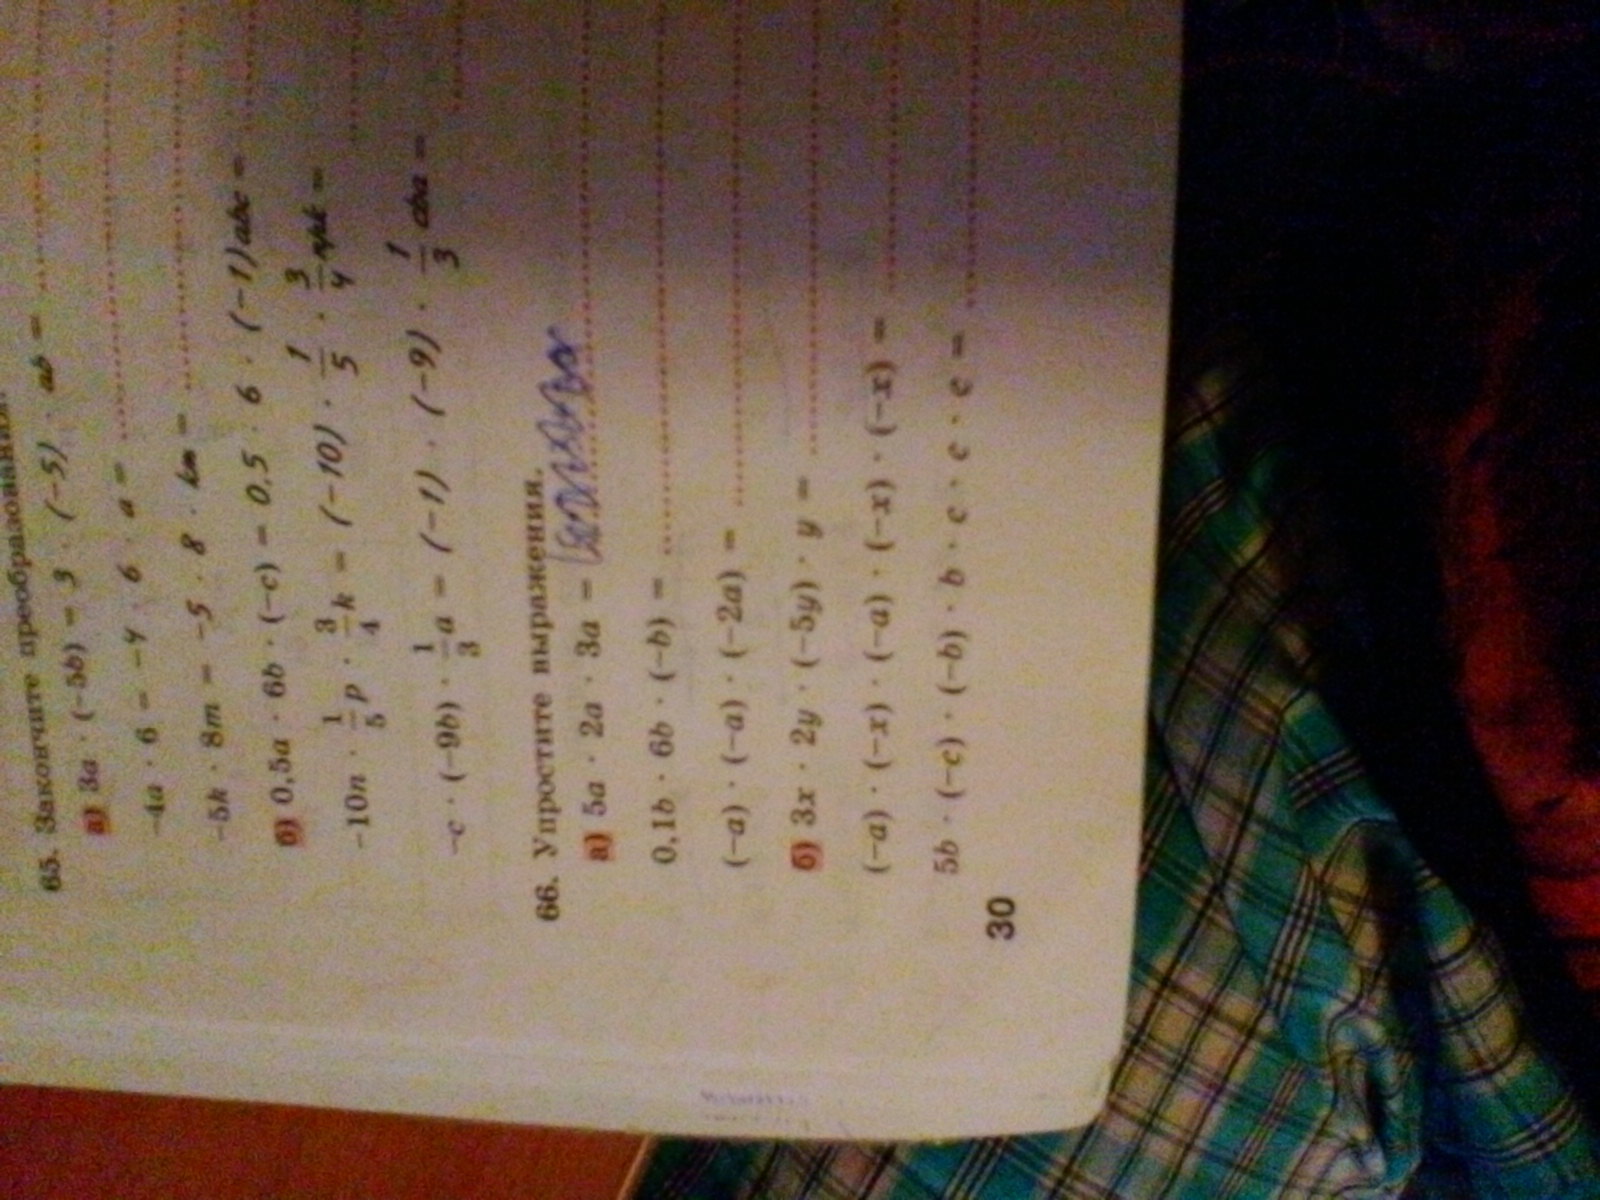 65. Закончите преобразования.
а) 3a · (−5b) = 3 · (−5) · ab =
−4a · 6 = −4 · 6 · a =
−5k · 8m = −5 · 8 · km =
б) 0,5a · 6b · (−c) = 0,5 · 6 · (−1)abc =
−10n · 1/5 p · 3/4 k = (−10) · 1/5 · 3/4 npk =
−c · (−9b) · 1/3 a = (−1) · (−9) · 1/3 cba =
66. Упростите выражения.
а) 5a · 2a · 3a =
0,1b · 6b · (−b) =
(−a) · (−a) · (−2a) =
б) 3x · 2y · (−5y) · y =
(−a) · (−x) · (−a) · (−x) · (−x) =
5b · (−c) · (−b) · b · c · c · c =
30